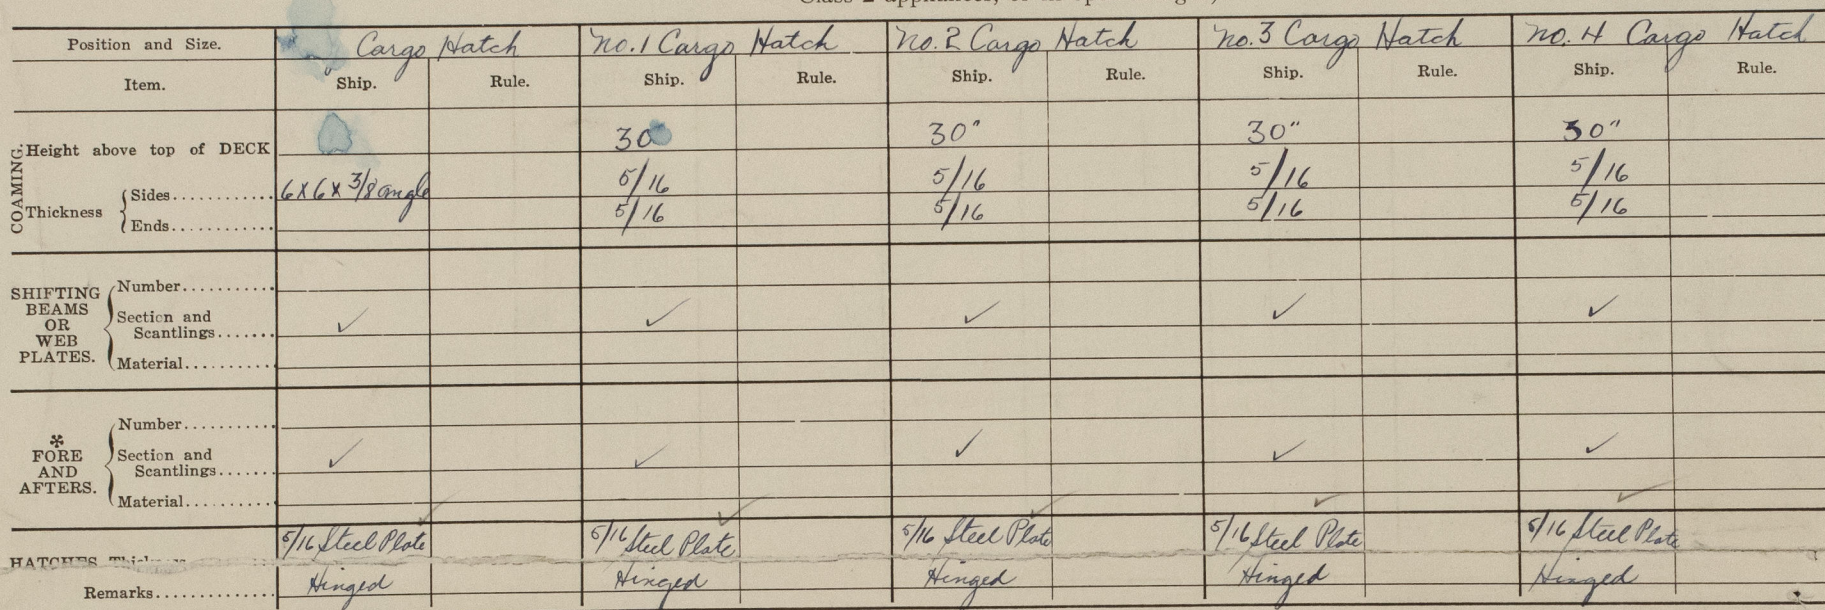 Position and Size. Cargo Hatch No. 1 Cargo Hatch No. 2 Cargo Hatch No. 3 Cargo Hatch No. 4 Cargo Hatch
Item. Ship. Rule. Ship. Rule. Ship. Rule. Ship. Rule. Ship. Rule.
COAMING.
Height above top of DECK 30 30" 30" 30"
Thickness
Sides........... 6 x 6 x 3/8 angle 5/16 5/16 5/16 5/16
Ends............ 5/16 5/16 5/16 5/16
SHIFTING BEAMS OR WEB PLATES.
Number..........
Section and
Scantlings....... ✓ ✓ ✓ ✓ ✓
Material..........
* FORE AND AFTERS.
Number..........
Section and
Scantlings....... ✓ ✓ ✓ ✓ ✓
Material.......... ✓ ✓ ✓ ✓ ✓
HATCHES 5/16 Steel Plate 5/16 Steel Plate 5/16 Steel Plate 5/16 Steel Plate 5/16 Steel Plate
Remarks............. Hinged Hinged Hinged Hinged Hinged